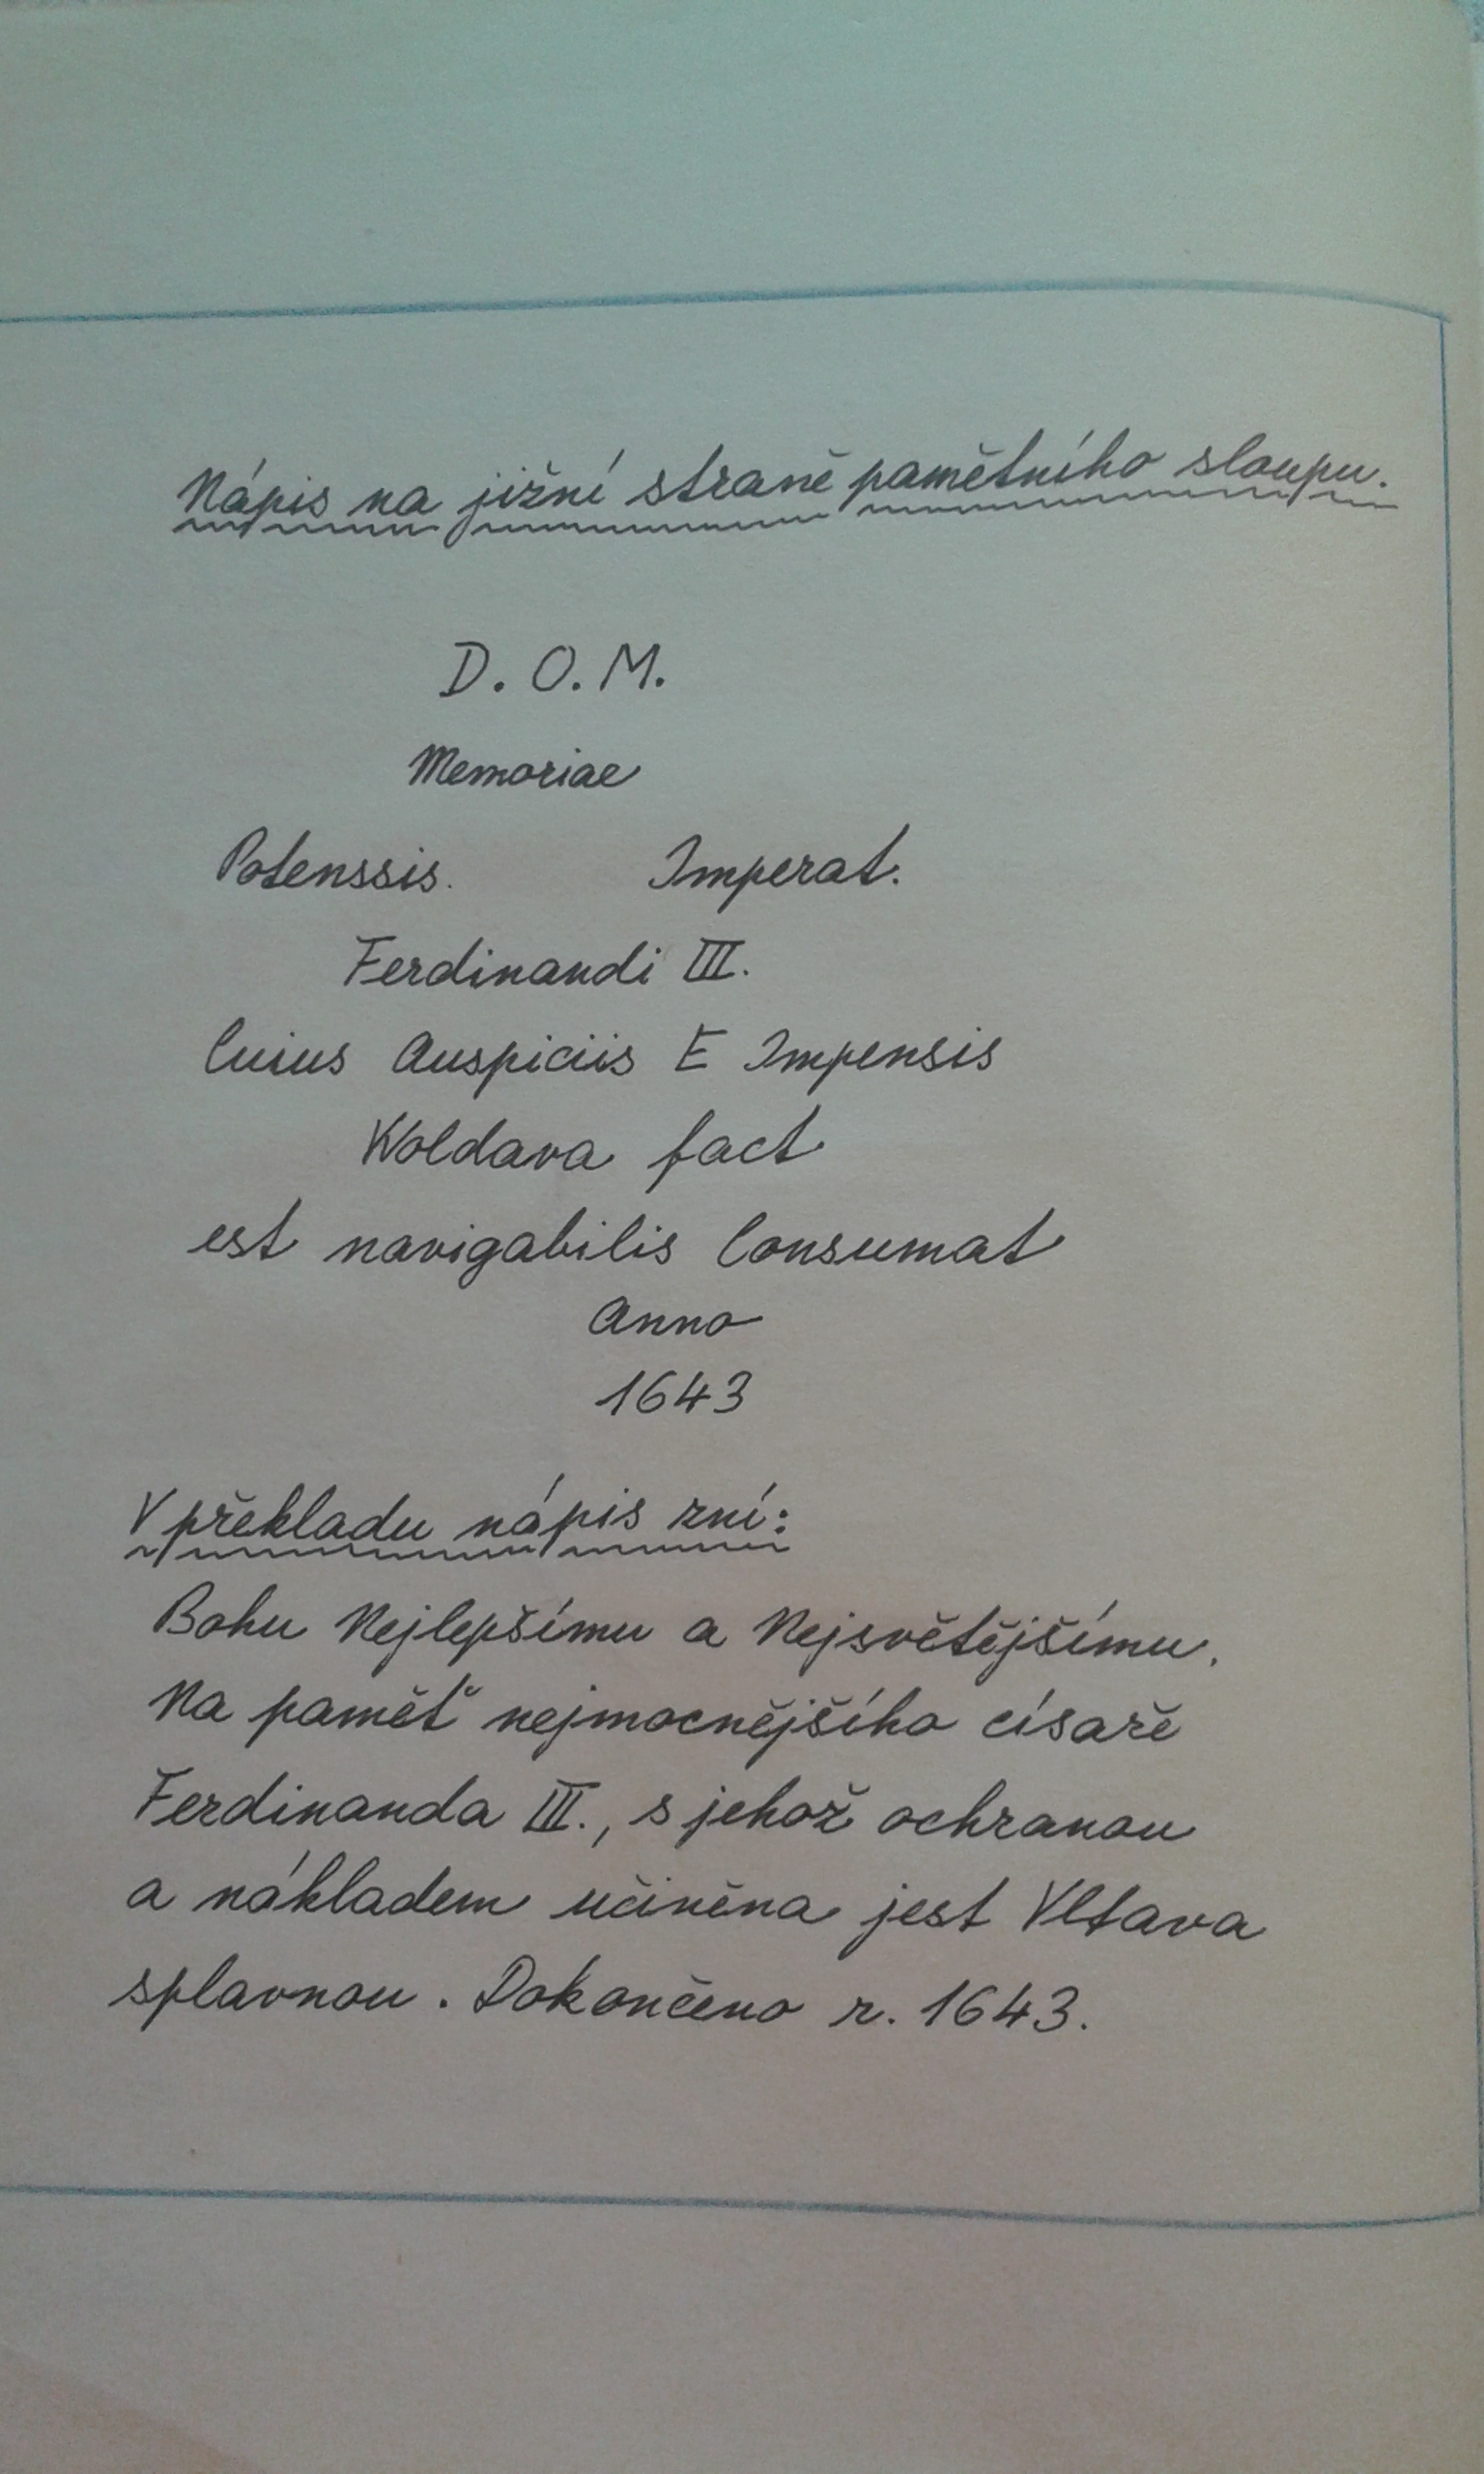 Nápis na jižní straně pamětního sloupu.
D. O. M.
Memoriae
Potenssis. Imperat.
Ferdinandi III.
Cuius Auspiciis E Impensis
Woldava fact
est navigabilis Consumat
Anno
1643
V překladu nápis zní:
Bohu Nejlepšímu a Nejsvětějšímu.
Na paměť nejmocnějšího císaře
Ferdinanda III., s jehož ochranou
a nákladem učiněna jest Vltava
splavnou. Dokončeno r. 1643.